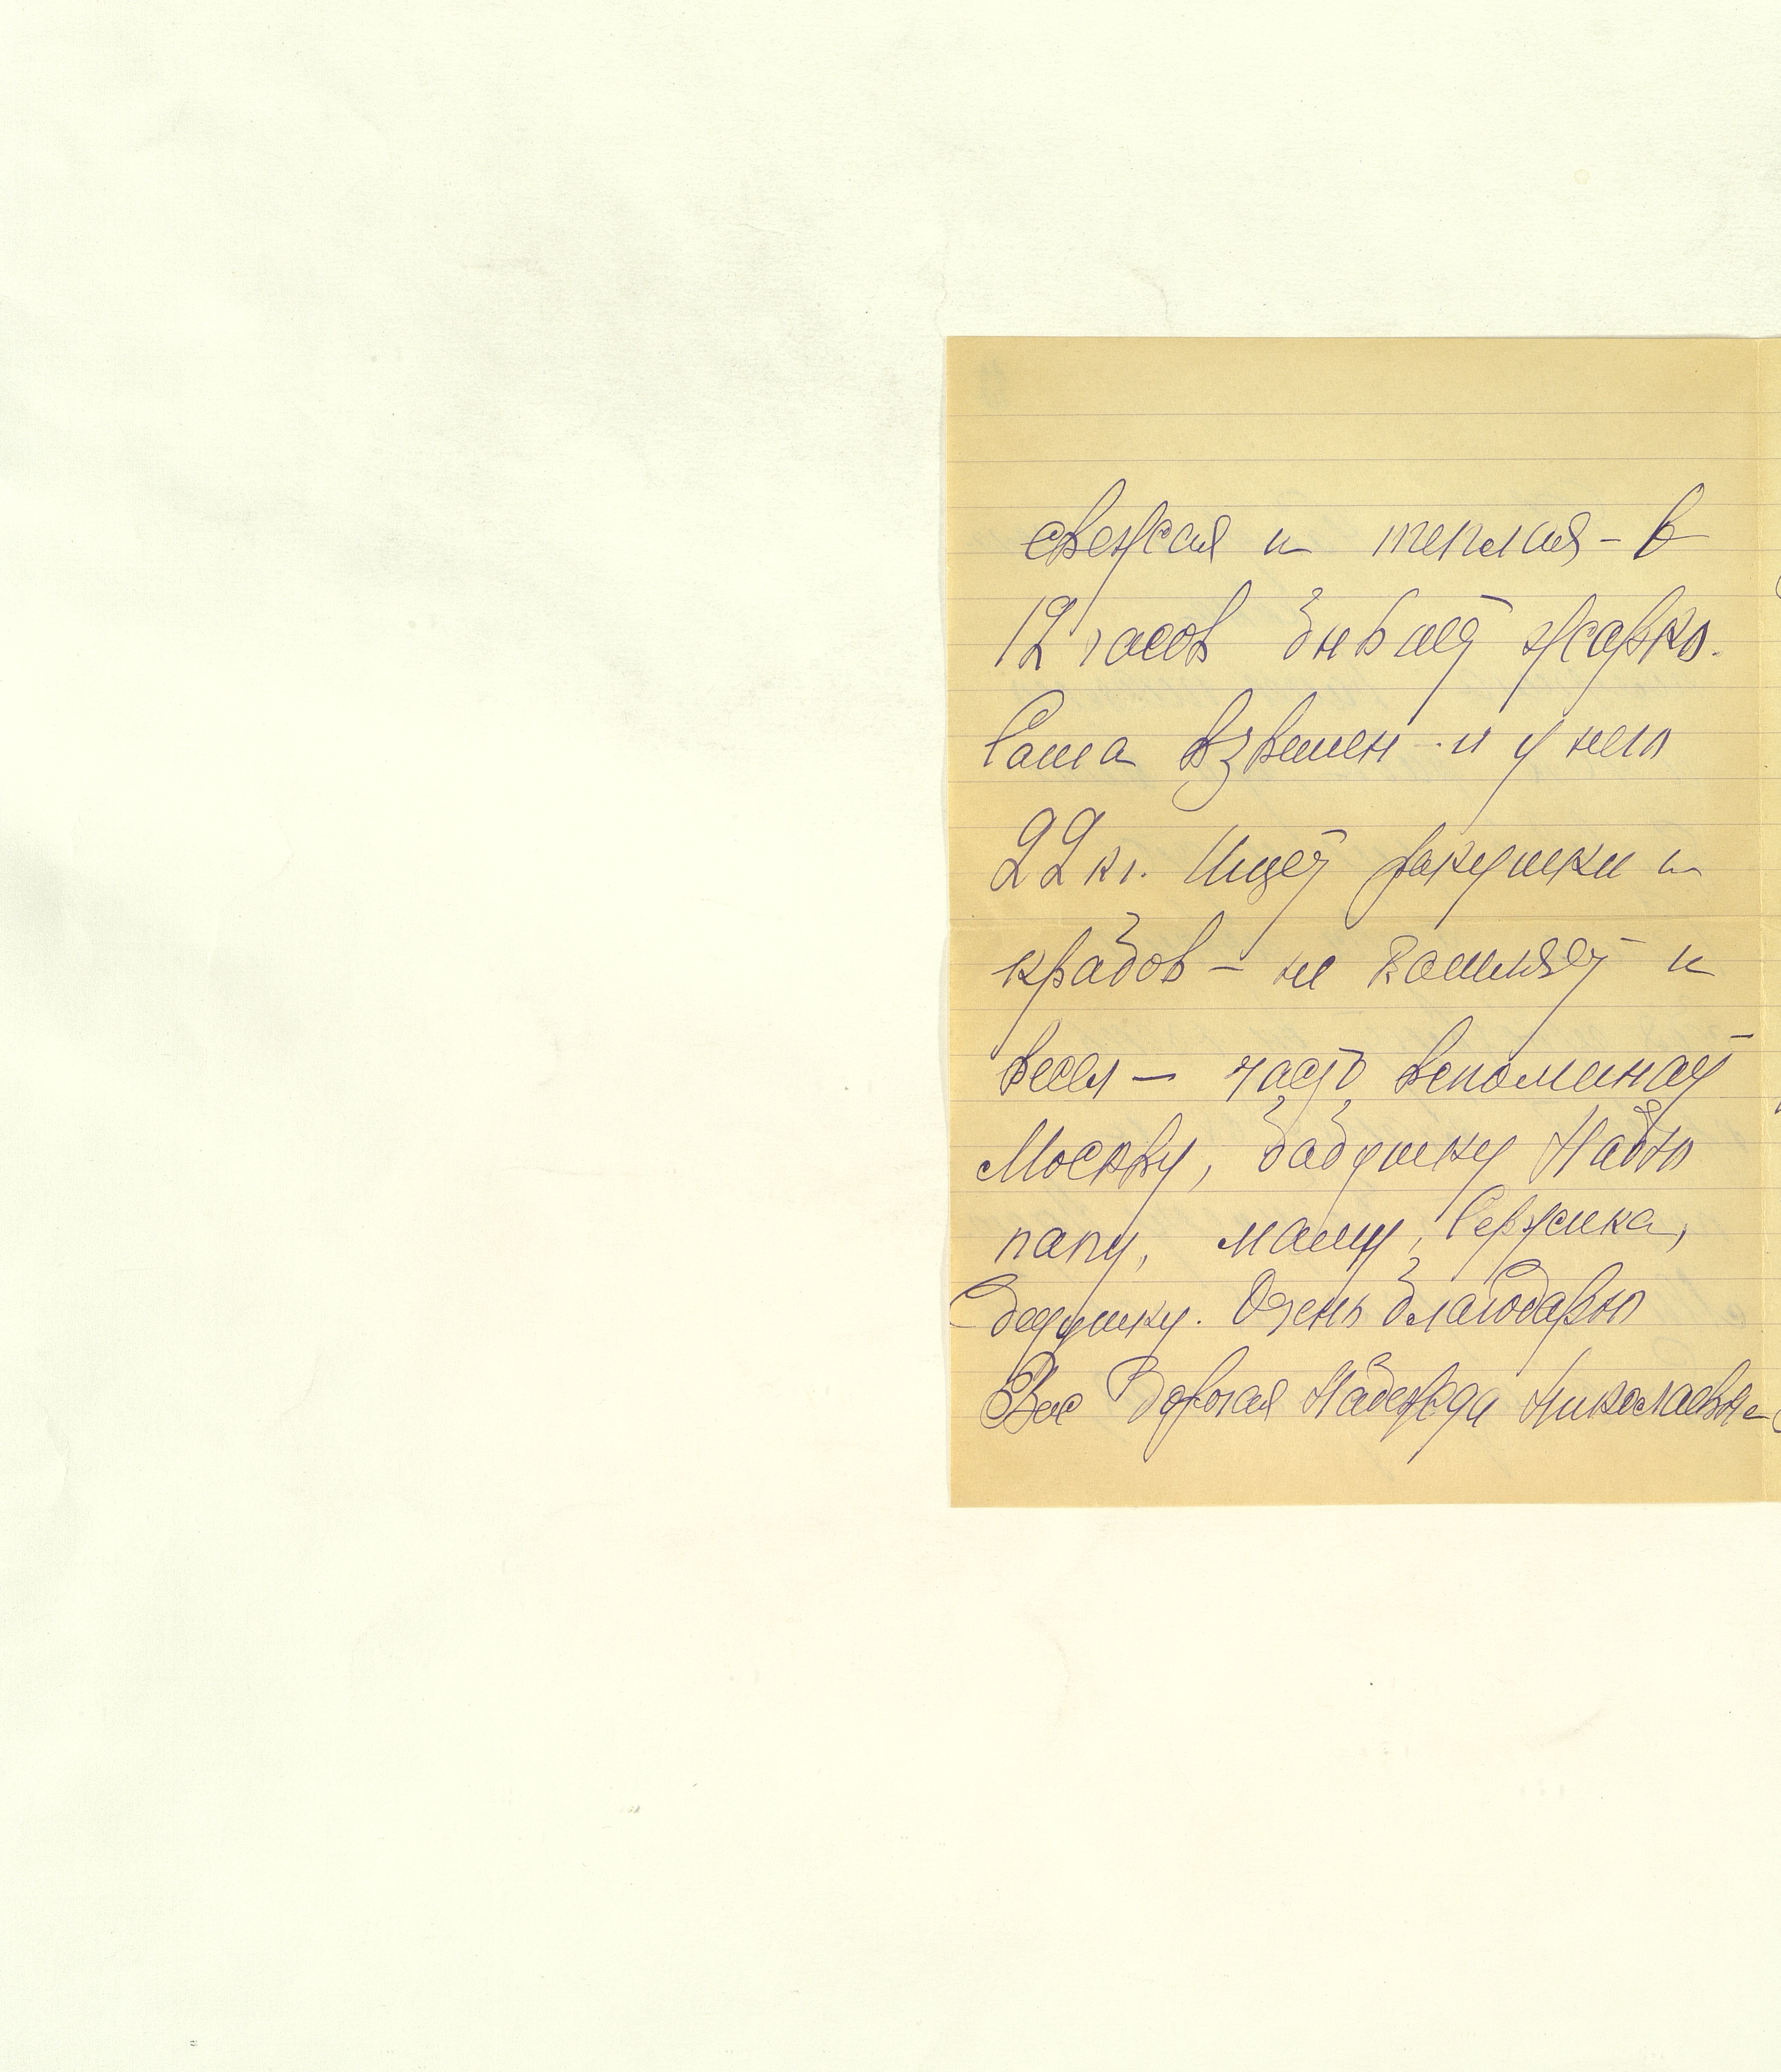 свежая и теплая - в
12 часов бывает жарко.
Саша взвешен - и у него
22 кг. Ищет ракушки и
крабов - не кашляет и
весел - часто вспоминает
Москву, бабушку Надю
папу, маму, Сержика,
дедушку. Очень благодарю
Вас Дорогая Надежда Николаевна